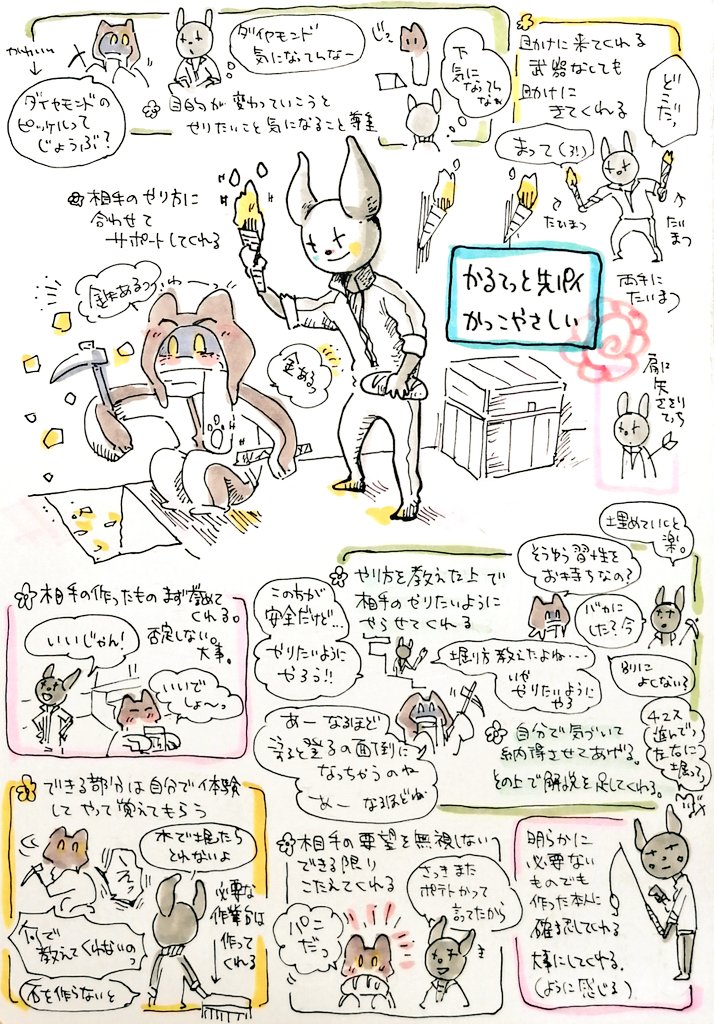 かわいい
ダイヤモンドの
ピッケルって
じょうぶ?
ダイヤモンド
気になってんなー
じっ
下
気に
なってん
なぁ
目的が変わっていこうと
やりたいこと気になること尊重
助けに来てくれる
武器なくても
助けに
きてくれる
どこだっ
まって(3!)
たいまつ
たいまつ
両手に
たいまつ
相手のやり方に
合わせて
サポートしてくれる
金あるっ
わーっ
金あるっ
かるてっと先パイ
かっこやさしい
肩に
矢
ささり
てっち
相手の作ったものまず教めて
くれる。
否定しない。
大事。
いいじゃん!
いいで
しょ〜
やり方を教えた上で
相手のやりたいように
やらせてくれる
この方が
安全だけど…
やりたいように
やろう!!
そうゆう習性を
お持ちなの?
埋めていくと
楽。
バカに
した?今
別に
よくない?
掘り方教えたよね…
いや
やりたいように
やる
あーなるほど
登る面倒に
なっちゃうのね
あーなるほどね
自分で気づいて
納得させてあげる。
その上で解説を足してくれる。
2マス
進んで
ななに
掘って
できる部分は自分で体験
してやって覚えてもらう
えっ
木で掘たら
とれないよ
何で
教えてくんないのっ
石を作らないと
必要な
作業台は
作って
くれる
相手の要望を無視しない
できる限り
こたえてくれる
さっきまた
ポテトかって
言ってたから
パン
だっ
明らかに
必要ない
ものでも
作った本人に
確認してくれる
大事にしてくれる.
(ように感じる)